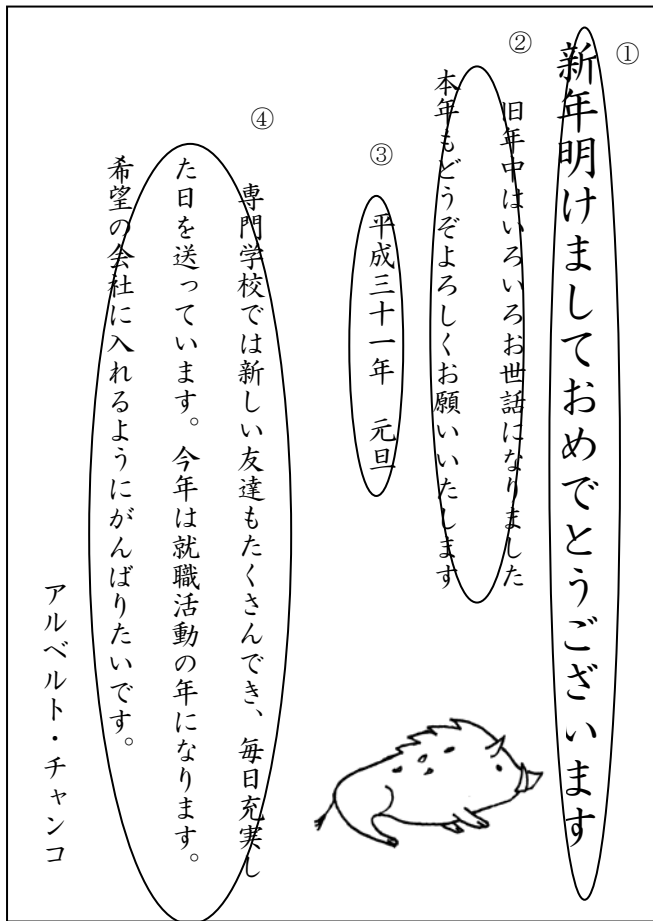 ①
新年明けましておめでとうございます
②
旧年中はいろいろお世話になりました
本年もどうぞよろしくお願いいたします
③
平成三十一年　元旦
④
専門学校では新しい友達もたくさんでき、毎日充実し
た日を送っています。今年は就職活動の年になります。
希望の会社に入れるようにがんばりたいです。
アルベルト・チャンコ